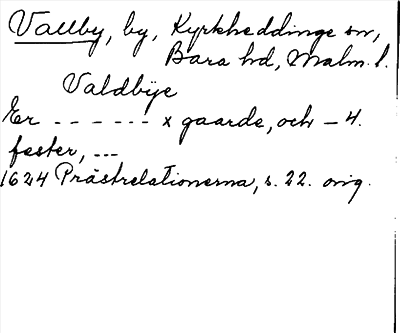 Vallby, by, Kyrkheddinge sn,
Bara hd, Malm. l.
Valdbÿe
Er - - - - - - x gaarde, och - 4.
fester, ---
1624 Prästrelationerna, s. 22. orig.